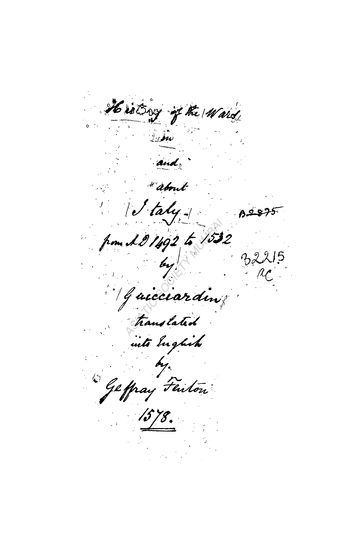 History of the Wars
in
and
about
Italy
from A D 1492 to 1532
by
Guicciardin
translated
into English
by
Geffray Fenton
1578.
B2215